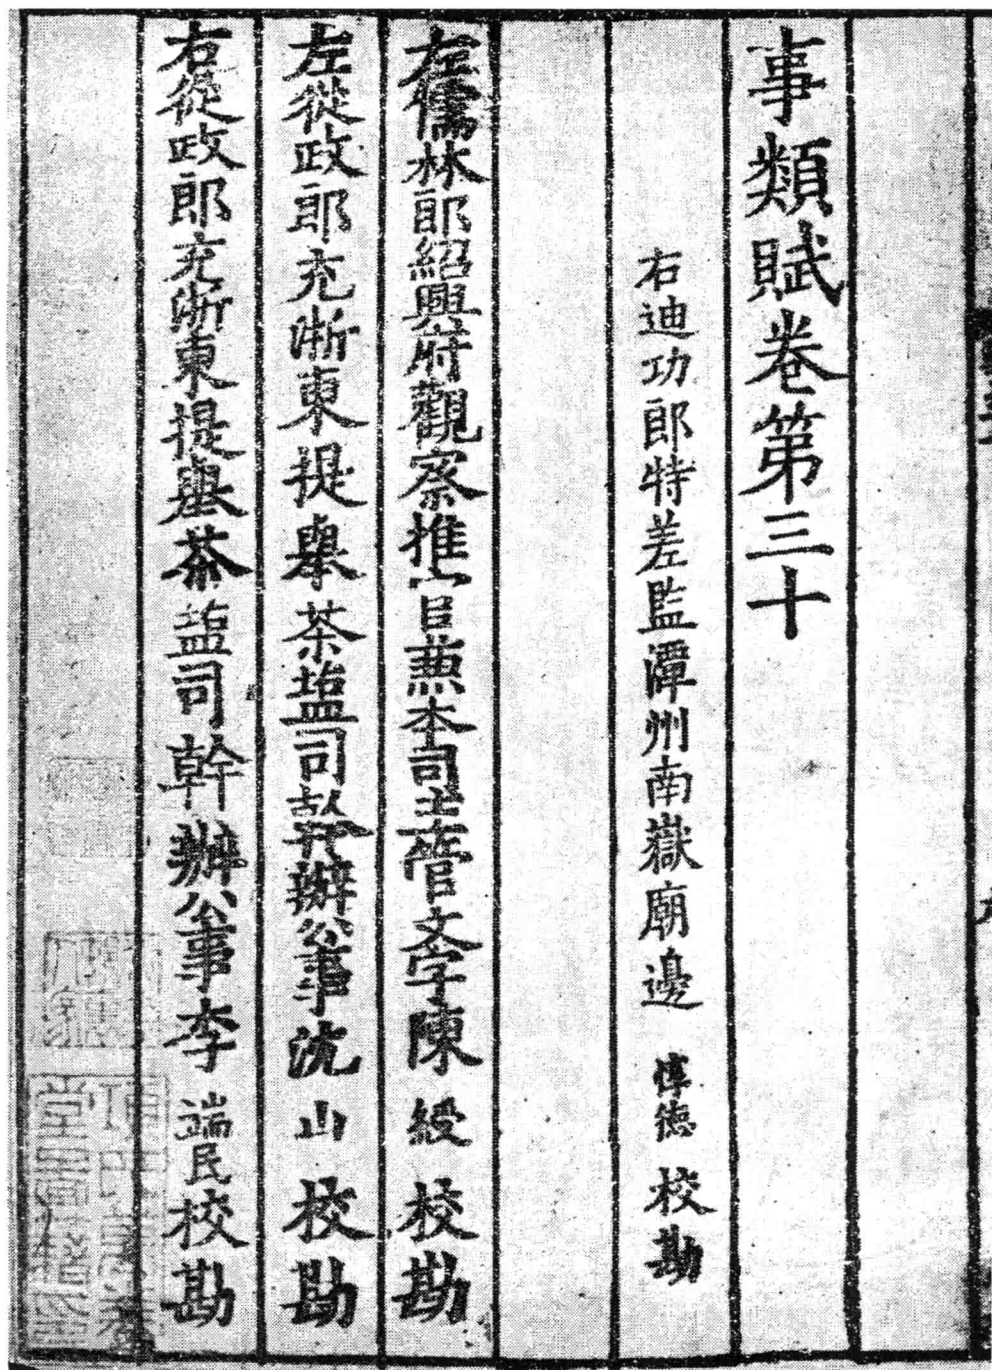 事類賦卷第三十
右迪功郎特差監潭州南嶽廟邊 惇德 校勘
左儒林郎紹興府觀察推官兼本司主管文字陳 綬 校勘
左從政郎充浙東提舉茶塩司幹辦公事沈 山 校勘
右從政郎充浙東提舉茶塩司幹辦公事李 端民 校勘